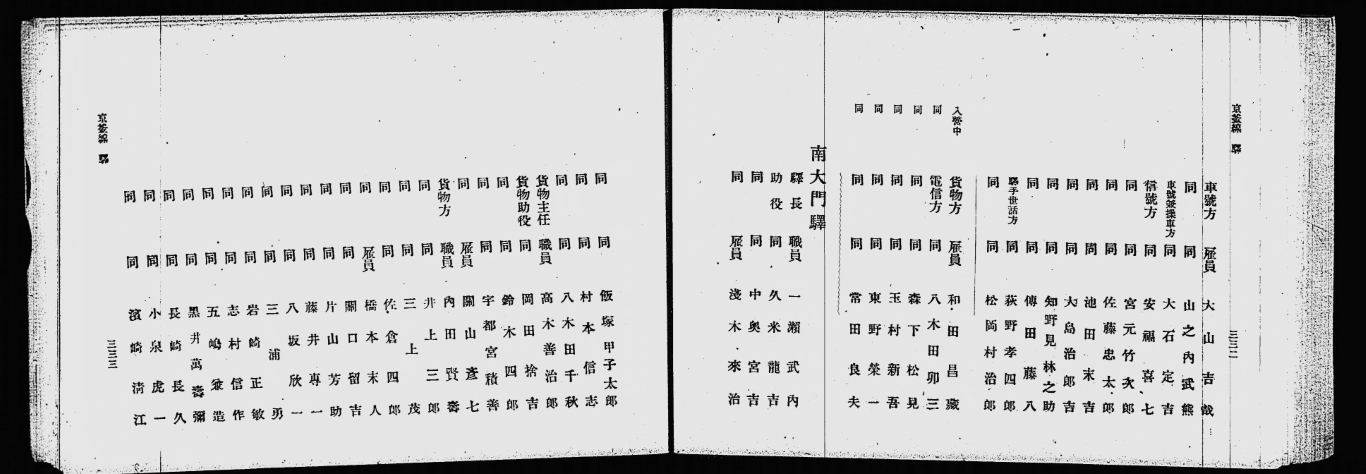 京釜線 驛
三三二
車號方 雇員 大山吉哉
同 同 山之内武熊
車號並操車方 同 大石定吉
信號方 同 安福喜七
同 同 宮元竹次郎
同 同 佐藤忠太郎
同 同 池田末吉
同 同 大島治郎吉
同 同 知野見林之助
同 同 傳田藤八
驛手世話方 同 荻野孝四郎
同 同 松岡村治郎
入營中 貨物方 雇員 和田昌藏
同 電信方 同 八木田卯三
同 同 同 森下松見
同 同 同 玉村新吾
同 同 同 東野榮一
同 同 同 常田良夫
南大門驛
驛長 職員 一瀬武内
助役 同 久米龍吉
同 同 中奥宮吉
同 雇員 淺木來治
同 同 飯塚甲子太郎
同 同 村本信志
同 同 八木田千秋
貨物主任 職員 高木善治郎
貨物助役 同 岡田捨吉
同 同 鈴木四郎
同 同 宇都宮積善
同 雇員 關山彦七
貨物方 職員 内田賢壽
同 同 井上三郎
同 同 三上茂
同 同 佐倉四郎
同 雇員 橋本末人
同 同 關口留吉
同 同 片山芳助
同 同 藤井專一
同 同 八坂欣一
同 同 三浦勇
同 同 岩崎正敏
同 同 志村信作
同 同 五嶋兼造
同 同 黑井萬壽彌
同 同 長崎長久
同 同 小泉虎一
同 同 濱崎淸江
京釜線 驛
三三三